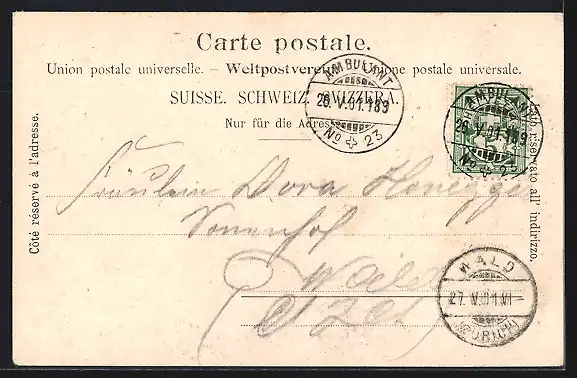 Carte postale.
Union postale universelle. – Weltpostverein. – Unione postale universale.
SUISSE. SCHWEIZ. SVIZZERA.
Nur für die Adresse.
Côté réservé à l'adresse.
riservato all' indirizzo.
AMBULANT
26. V. 01. 189
No 23
AMBULANT
26. V. 01. 189
No 23
Fräulein Dora Honegger
Sonnenhof
Wald
Ct. Zch.
WALD
27. V. 01. VI–
(ZÜRICH)